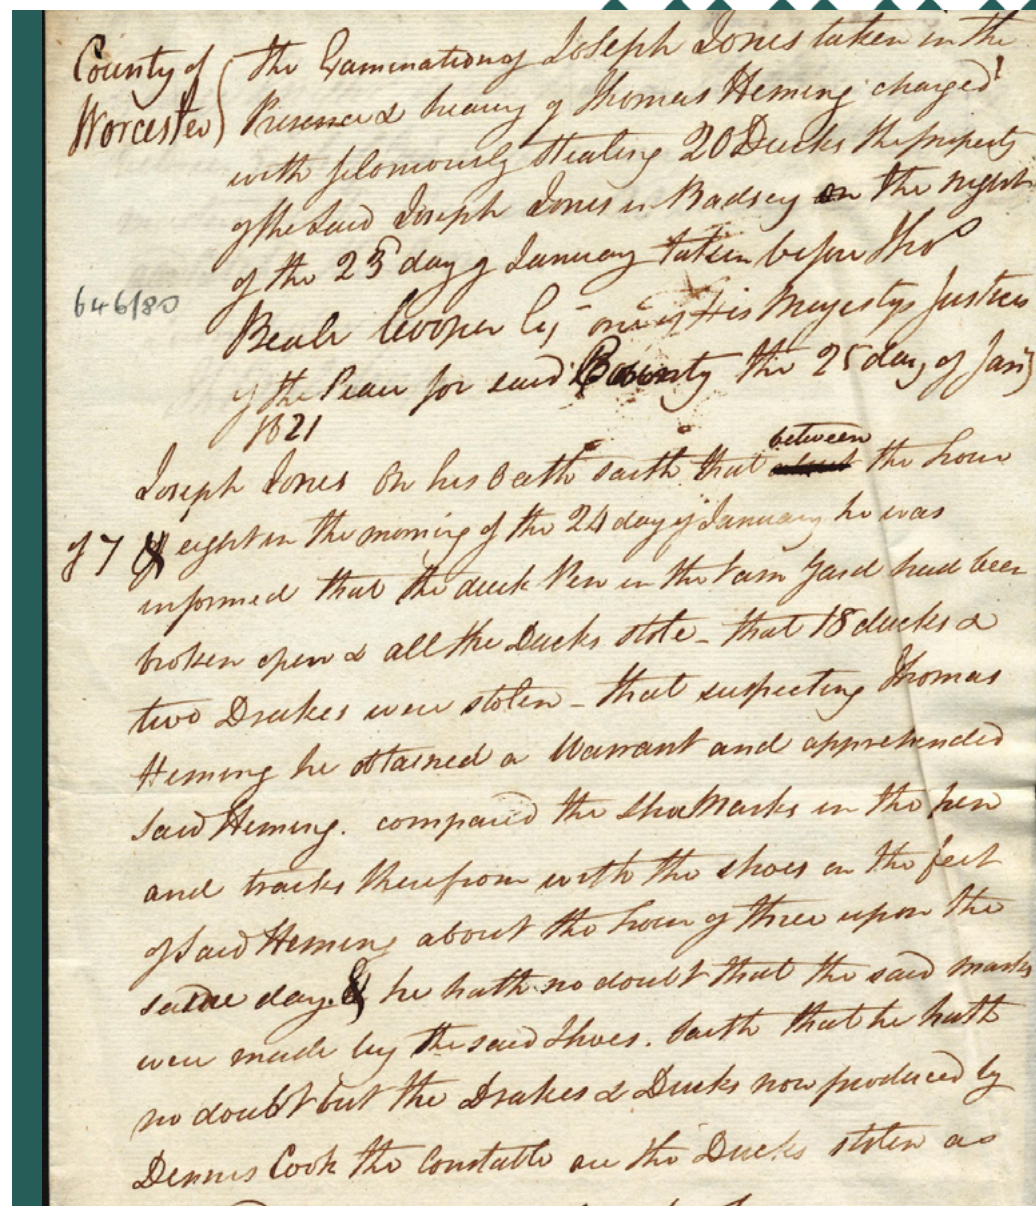 County of
Worcester
The Examination of Joseph Jones taken in the
Presence & hearing of Thomas Heming charged
with feloniously Stealing 20 Ducks the property
of the said Joseph Jones in Badsey on the night
of the 23 day of January taken before Thos
Beale Cooper Esq one of His Majestys Justices
of the Peace for said County the 25 day of Jany
1821
646/80
Joseph Jones On his Oath saith that between the hour
of 7 & eight in the morning of the 24 day of January he was
informed that the duck Pen in the Farm Yard had been
broken open & all the Ducks stole - that 18 ducks &
two Drakes were stolen - that suspecting Thomas
Heming he obtained a Warrant and apprehended
said Heming. compared the Shoe Marks in the pen
and tracks therefrom with the shoes on the feet
of said Heming about the hour of three upon the
same day. & he hath no doubt that the said marks
were made by the said Shoes. Saith that he hath
no doubt but the Drakes & Ducks now produced by
Dennis Cook the Constable are the Ducks stolen as